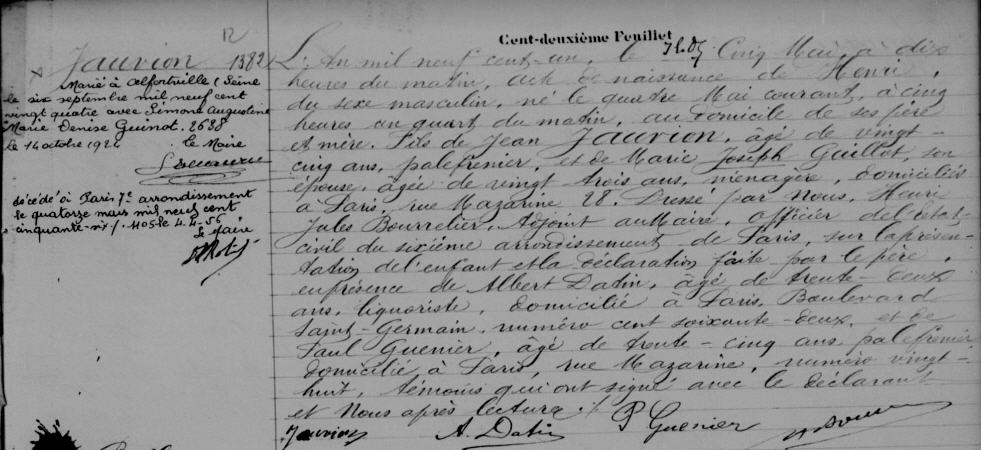 12
Cent-deuxième Feuillet
Jauvion 1382
Marié à Alfortville (Seine
le six septembre mil neuf cent
vingt quatre avec Simone Augustine
Marie Denise Guenot. 2688
le 14 octobre 1924 le Maire
décédé à Paris 7e arrondissement
le quatorze mars mil neuf cent
cinquante-six /. 1105 le 4.4.56
le Maire
L'An mil neuf cent-un, le Cinq Mai, à dix
heures du matin, acte de naissance de Henri,
du sexe masculin, né le quatre Mai courant, à cinq
heures un quart du matin, au domicile de ses père
et mère. Fils de Jean Jauvion, âgé de vingt-
cinq ans, palefrenier, et de Marie Joseph Guillot, son
épouse, âgée de vingt trois ans, ménagère, domiciliés
à Paris, rue Mazarine 28. Dressé par Nous, Henri
Jules Bourrelier, Adjoint au Maire, officier de l'état-
civil du sixième arrondissement de Paris, sur la présen-
tation de l'enfant et la déclaration faite par le père,
en présence de Albert Datin, âgé de trente-deux
ans, liquoriste, domicilié à Paris, Boulevard
Saint-Germain, numéro cent soixante-deux, et de
Paul Guenier, âgé de trente-cinq ans, palefrenier
domicilié à Paris, rue Mazarine, numéro vingt-
huit, témoins qui ont signé avec le déclarant
et Nous après lecture ./.
Jauvion A. Datin P Guenier